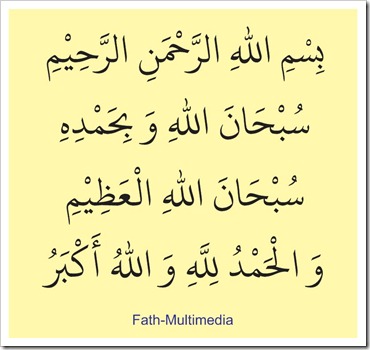 بِسْمِ اللهِ الرَّحْمَنِ الرَّحِيْمِ
سُبْحَانَ اللهِ وَ بِحَمْدِهِ
سُبْحَانَ اللهِ الْعَظِيْمِ
وَ الْحَمْدُ لِلَّهِ وَ اللهُ أَكْبَرُ
Fath-Multimedia